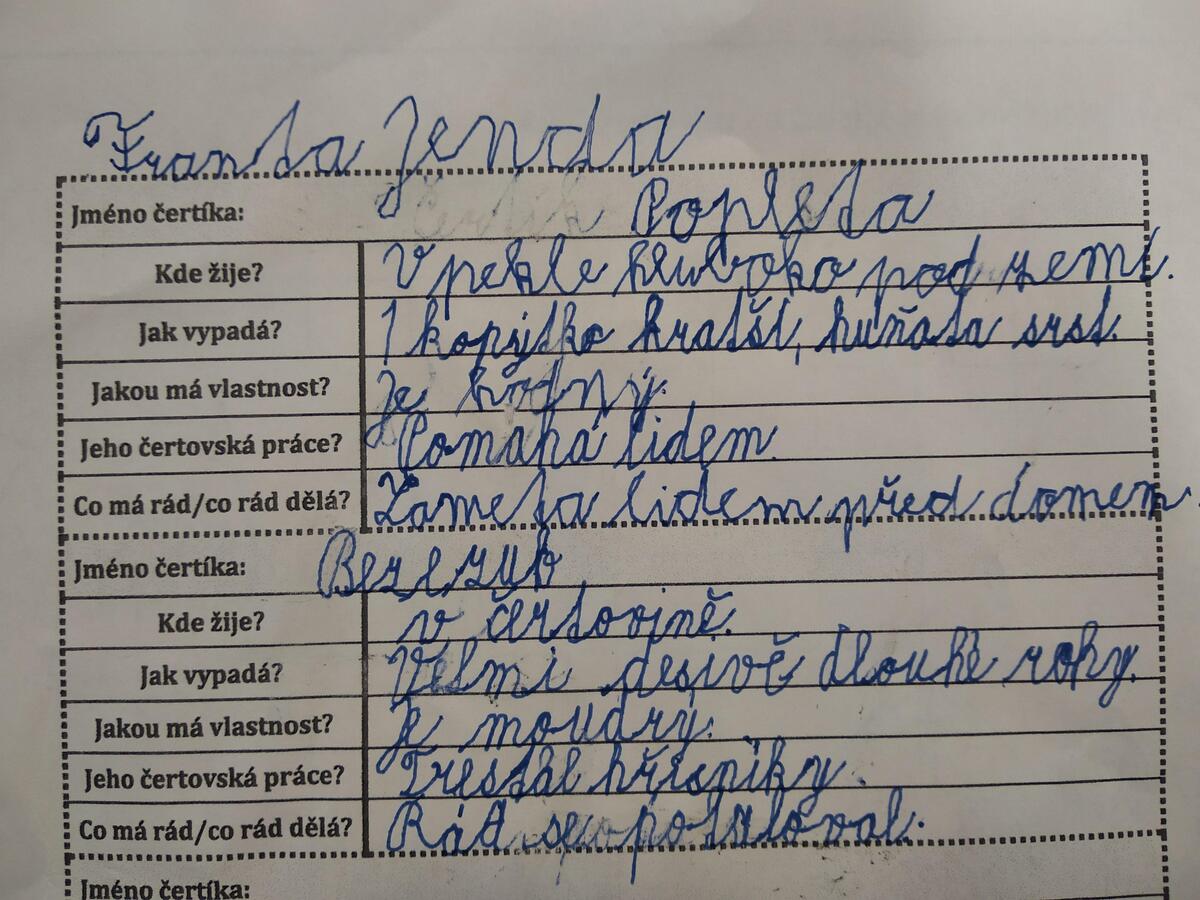 Franta Jenda
Jméno čertíka: Popleta
Kde žije? V pekle hluboko pod zemí.
Jak vypadá? 1 kopýtko kratší, huňata srst.
Jakou má vlastnost? Je hodný.
Jeho čertovská práce? Pomahá lidem.
Co má rád/co rád dělá? Zameta lidem před domem.
Jméno čertíka: Bezezub
Kde žije? v čertovině.
Jak vypadá? Velmi desivě dlouhé rohy.
Jakou má vlastnost? Je moudrý.
Jeho čertovská práce? Trestal hříšniky.
Co má rád/co rád dělá? Rád se potuloval.
Jméno čertíka: